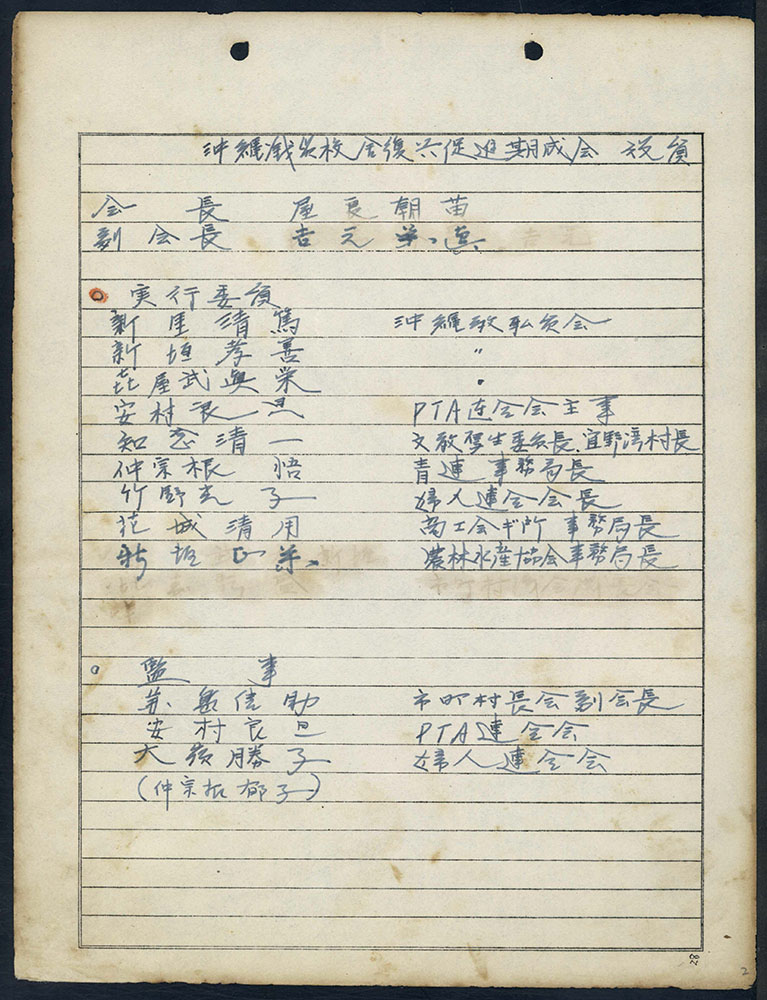 沖縄戦災校舎復興促進期成会 役員
会長 屋良朝苗
副会長 吉元栄真
○ 実行委員
新里清篤 沖縄教職員会
新垣孝善 〃
喜屋武真栄 〃
安村良旦 PTA連合会主事
知念清一 文教厚生委員長、宜野湾村長
仲宗根悟 青連事務局長
竹野光子 婦人連合会会長
花城清用 商工会議所 事務局長
新垣 農林水産協会事務局長
○ 監事
信助 市町村長会副会長
安村良旦 PTA連合会
大嶺勝子 婦人連合会
(仲宗根郁子)
28
2